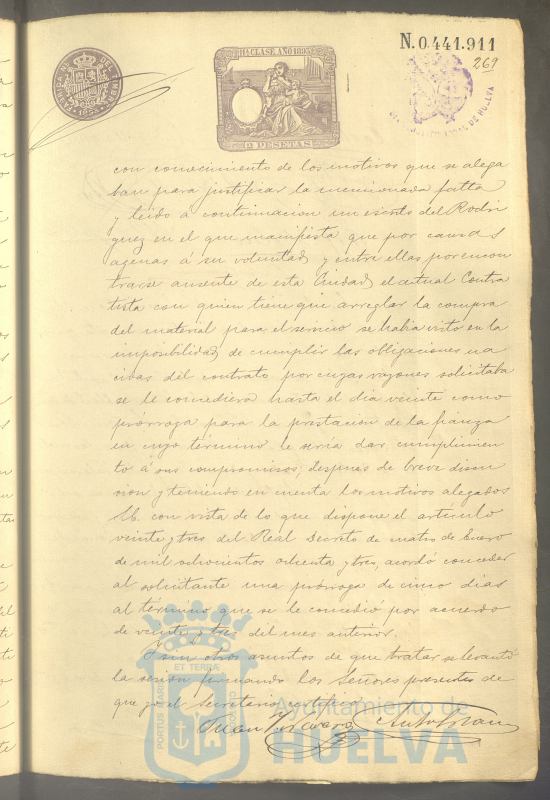 N.0.441.911
269
11ª CLASE. AÑO 1893
2 PESETAS
con conocimiento de los motivos que se alega
ban para justificar la mencionada falta
y leido á continuacion un escrito del Rodri
guez en el que manifiesta que por causas
agenas á su voluntad y entre ellas por encon
trarse ausente de esta Ciudad el actual Contra
tista con quien tiene que arreglar la compra
del material para el servicio se habia visto en la
imposibilidad de cumplir las obligaciones na
cidas del contrato por cuyas razones solicitaba
se le concediera hasta el dia veinte como
prórroga para la prestacion de la fianza
en cuyo término le sería dar cumplimien
to á sus compromisos; despues de breve discu
sion y teniendo en cuenta los motivos alegados
con vista de lo que dispone el artículo
veinte y tres del Real Decreto de cuatro de Enero
de mil ochocientos ochenta y tres, acordó conceder
al solicitante una prórroga de cinco dias
al término que se le concedió por acuerdo
de veinte y tres del mes anterior.
Y sin otros asuntos de que tratar se levantó
la sesion firmando los Señores presentes de
que yo el Secretario certifico
ET TERRÆ
PORTUS MARIS
CUSTODIO
Ayuntamiento de
HUELVA